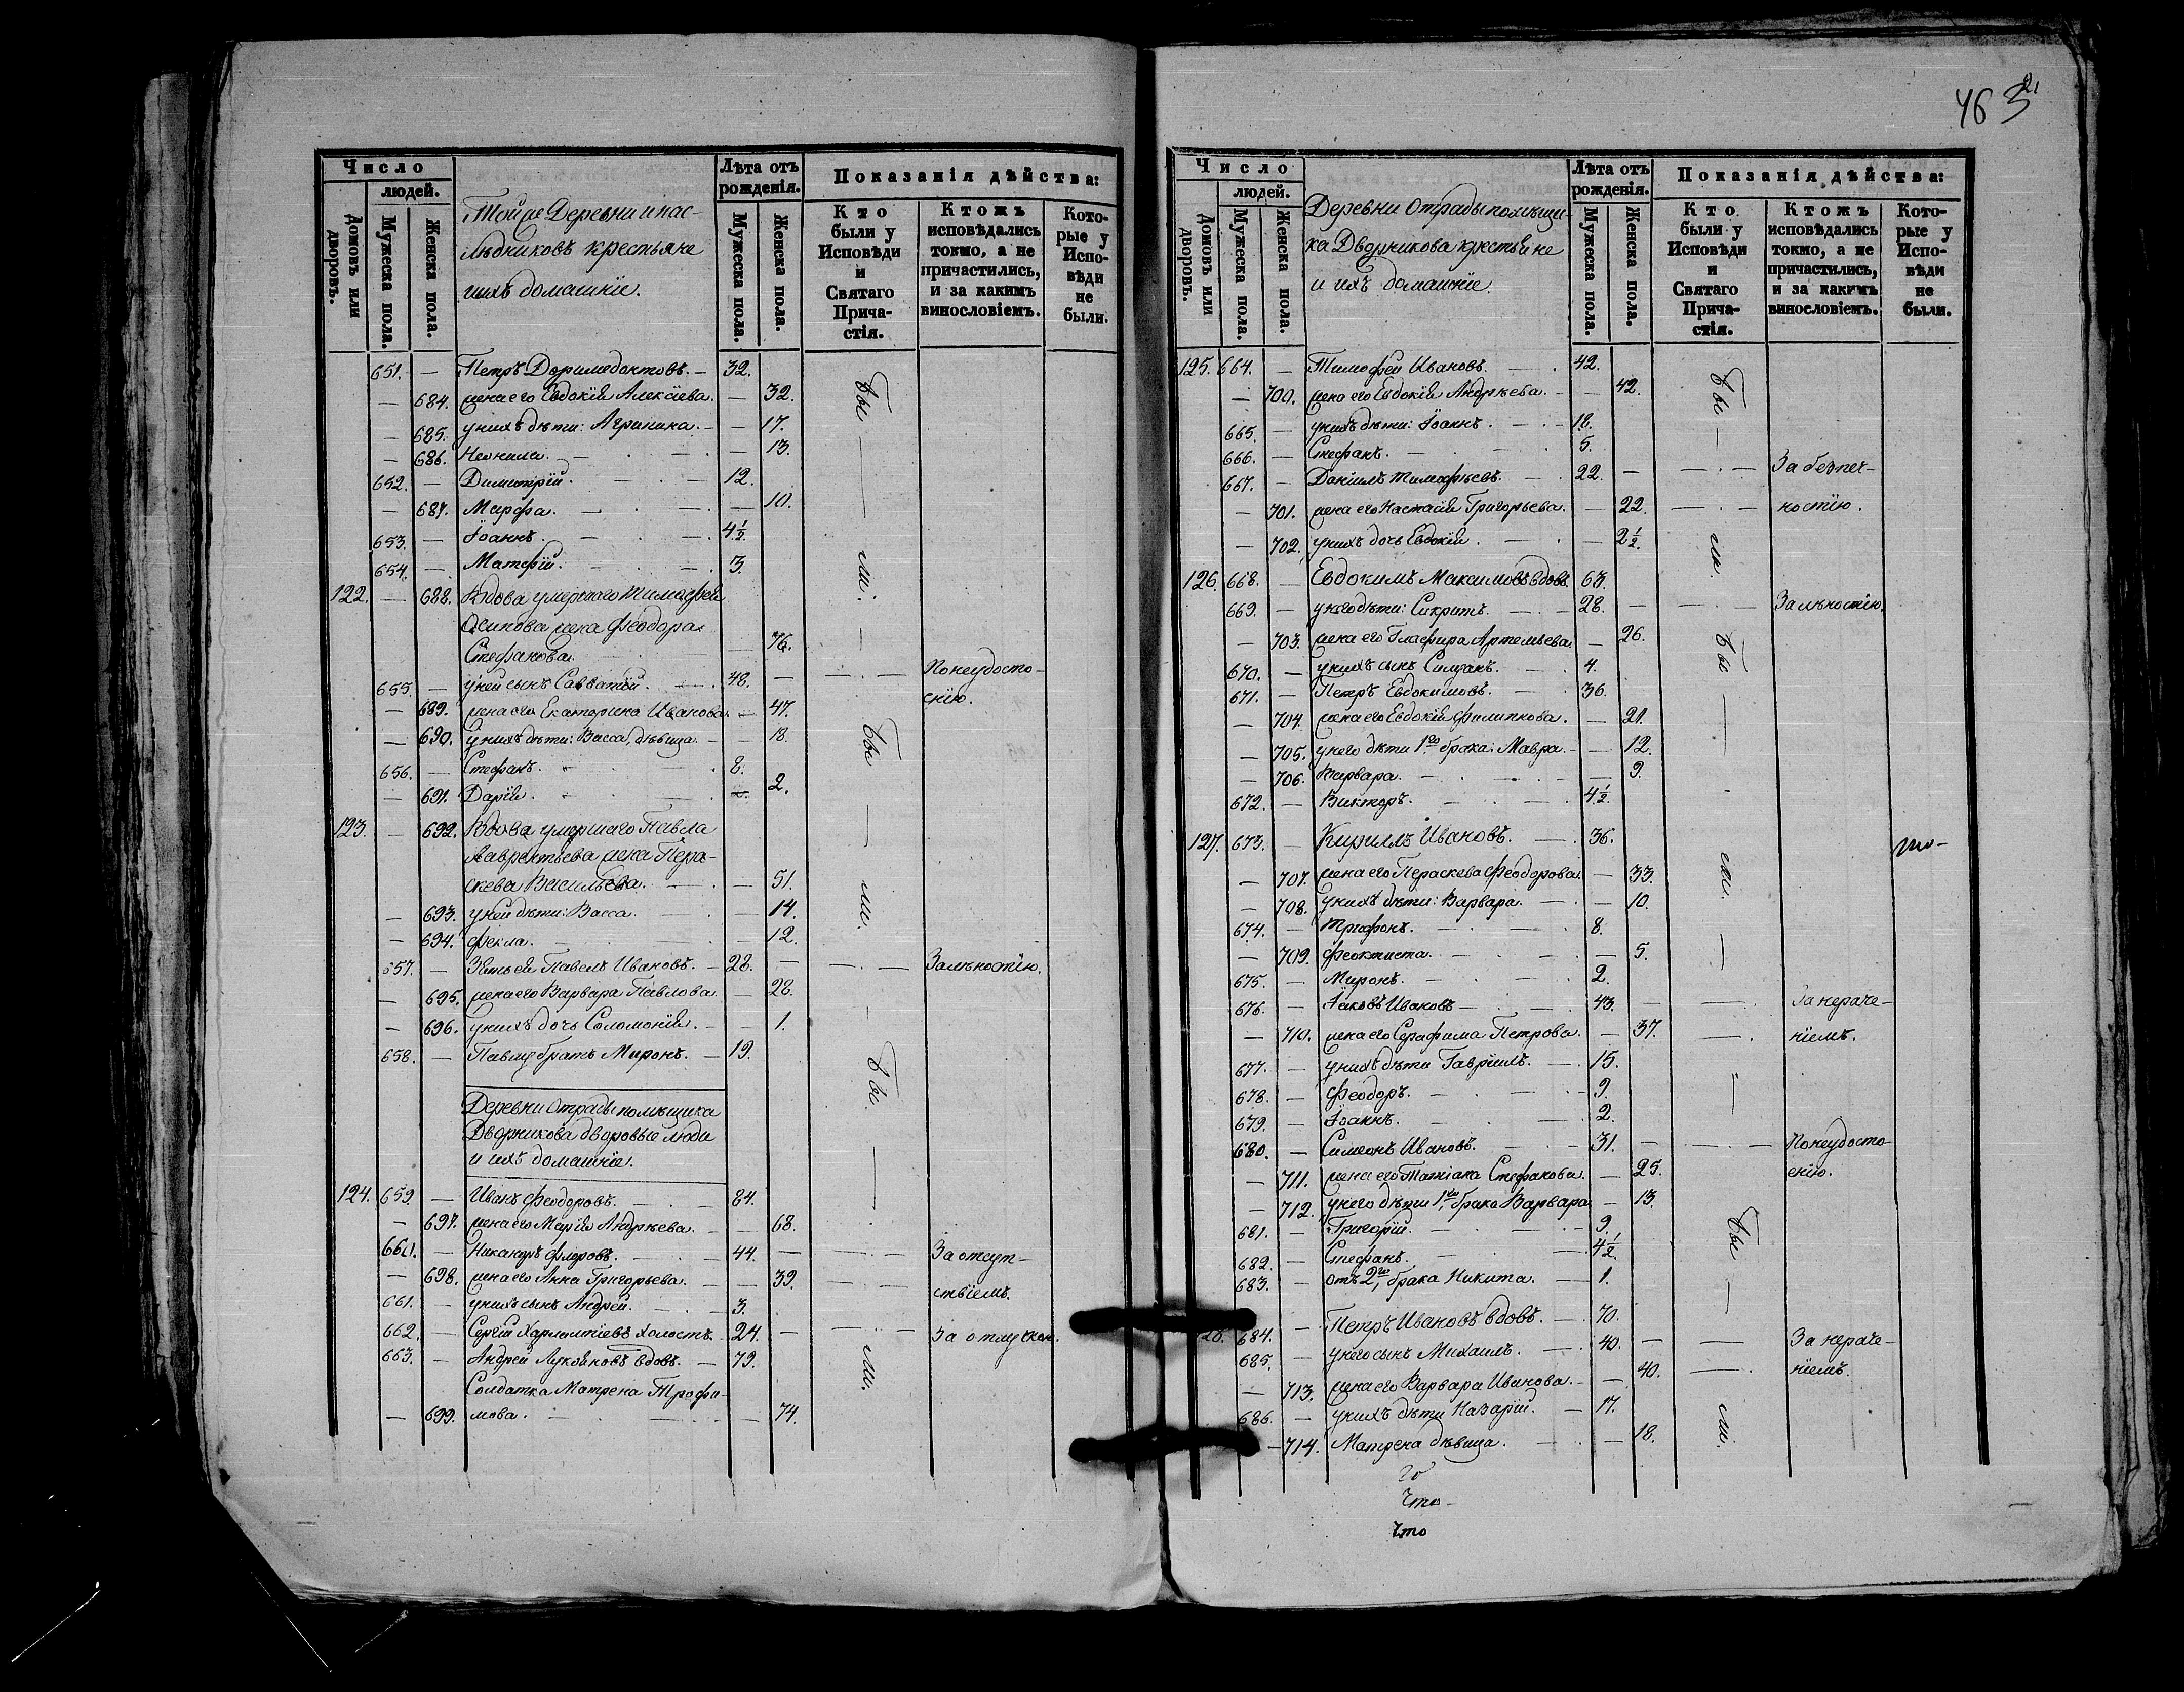 46 3
Число
людей.
Домовъ или дворовъ.
Мужеска пола.
Женска пола.
Тойже Деревни и нас-
лѣдниковъ крестьяне
и ихъ домашніе.
Лѣта отъ рожденія.
Мужеска пола.
Женска пола.
Показанія дѣйства:
Кто были у Исповѣди и Святаго Прича-стія.
Ктожъ исповѣдались токмо, а не причастились, и за какимъ винословіемъ.
Кото-рые у Испо-вѣди не были.
651. — Петръ Доримедонтовъ. — 32.
— 684. жена его Евдокія Алексіева. — 32. бы
— 685. у нихъ дѣти: Агрипина. — — 17.
— 686. Неонила. — 13.
652. — Димитрій. — 12.
— 687. Марфа. — 10.
653. — Іоаннъ. 4½.
654. — Матфій. 3. ли.
122. — 688. Вдова умершаго Тимофея
Осипова жена Феодора
Стефанова. — 76.
655. — у ней сынъ Савватій. 48. — — Понеудосто-
енію.
— 689. жена его Екатерина Иванова. — 47.
— 690. у нихъ дѣти: Васса, дѣвица. — — 18. бы
656. — Стефанъ. 8.
— 691. Дарія. 2.
123. — 692. Вдова умершаго Павла
Лаврентьева жена Пера-
скева Васильева. — 51.
— 693. у ней дѣти: Васса. — 14. ли.
— 694. Фекла. — 12.
657. — Зять ея Павелъ Ивановъ. — 28. — — Залѣностію.
— 695. жена его Варвара Павлова. — 28.
— 696. у нихъ дочь Соломонія. — — 1.
658. — Павлу братъ Миронъ. — 19. бы.
Деревни Отрады помѣщика
Дворникова дворовые люди
и ихъ домашніе.
124. 659. — Иванъ Феодоровъ. 84.
— 697. жена его Марія Андрѣева. — 68.
660. — Никандръ Флоровъ. 44. — — За отсут-
— 698. жена его Анна Григорьева. — 39. — ствіемъ.
661. — у нихъ сынъ Андрей. 3.
662. — Сергій Харлампіевъ холостъ. — 24. — — За отлучкою.
663. — Андрей Лукояновъ вдовъ. — 79. ли.
Солдатка Матрена Трофи-
— 699. мова. — 74.
Число
людей.
Домовъ или дворовъ.
Мужеска пола.
Женска пола.
Деревни Отрады помѣщи-
ка Дворникова крестьяне
и ихъ домашніе.
Лѣта отъ рожденія.
Мужеска пола.
Женска пола.
Показанія дѣйства:
Кто были у Исповѣди и Святаго Прича-стія.
Ктожъ исповѣдались токмо, а не причастились, и за какимъ винословіемъ.
Кото-рые у Испо-вѣди не были.
125. 664. — Тимофей Ивановъ. 42.
— 700. жена его Евдокія Андрѣева. — 42. бы
665. — у нихъ дѣти: Іоаннъ. — 18.
666. — Стефанъ. 5.
667. — Даніилъ Тимофѣевъ. 22. — — За безпеч-
— 701. жена его Настасія Григорьева. — 22. — ностію.
— 702. у нихъ дочь Евдокія. — 2½. ли.
126. 668. — Евдокимъ Максимовъ вдовъ. 63.
669. — у него дѣти: Сикритъ. — 28. — — Залѣностію.
— 703. жена его Глафира Артемьева. — 26. бы
670. — у нихъ сынъ Симеонъ. 4.
671. — Петръ Евдокимовъ. 36.
— 704. жена его Евдокія Филиппова. — 21.
— 705. у него дѣти 1го брака: Мавра. — 12.
— 706. Варвара. — 9.
672. — Викторъ. 4½.
127. 673. — Кириллъ Ивановъ. — 36. то-
— 707. жена его Пераскева Феодорова. — 33. ли.
— 708. у нихъ дѣти: Варвара. — 10.
674. — Трифонъ. 8.
— 709. Феоктиста. — 5.
675. — Миронъ. 2.
676. — Іаковъ Ивановъ — 43. — — За нераче-
— 710. жена его Серафима Петрова. — 37. — ніемъ.
677. — у нихъ дѣти Гавріилъ. — 15.
678. — Феодоръ. 9.
679. — Іоаннъ. 2.
680. — Симеонъ Ивановъ. 31. — — Понеудосто-
— 711. жена его Татіана Стефанова. — 25. енію.
— 712. у него дѣти 1го брака Варвара. — 13.
681. — Григорій. 9. бы
682. — Стефанъ. 4½.
683. — отъ 2го брака Никита. 1.
128. 684. — Петръ Ивановъ вдовъ. — 70.
685. — у него сынъ Михаилъ. — 40. — — За нераче-
— 713. жена его Варвара Иванова. — 40. — ніемъ.
686. — у нихъ дѣти Назарій. — 17. ли.
— 714. Матрена дѣвица. — 18.
го
Что-
Что